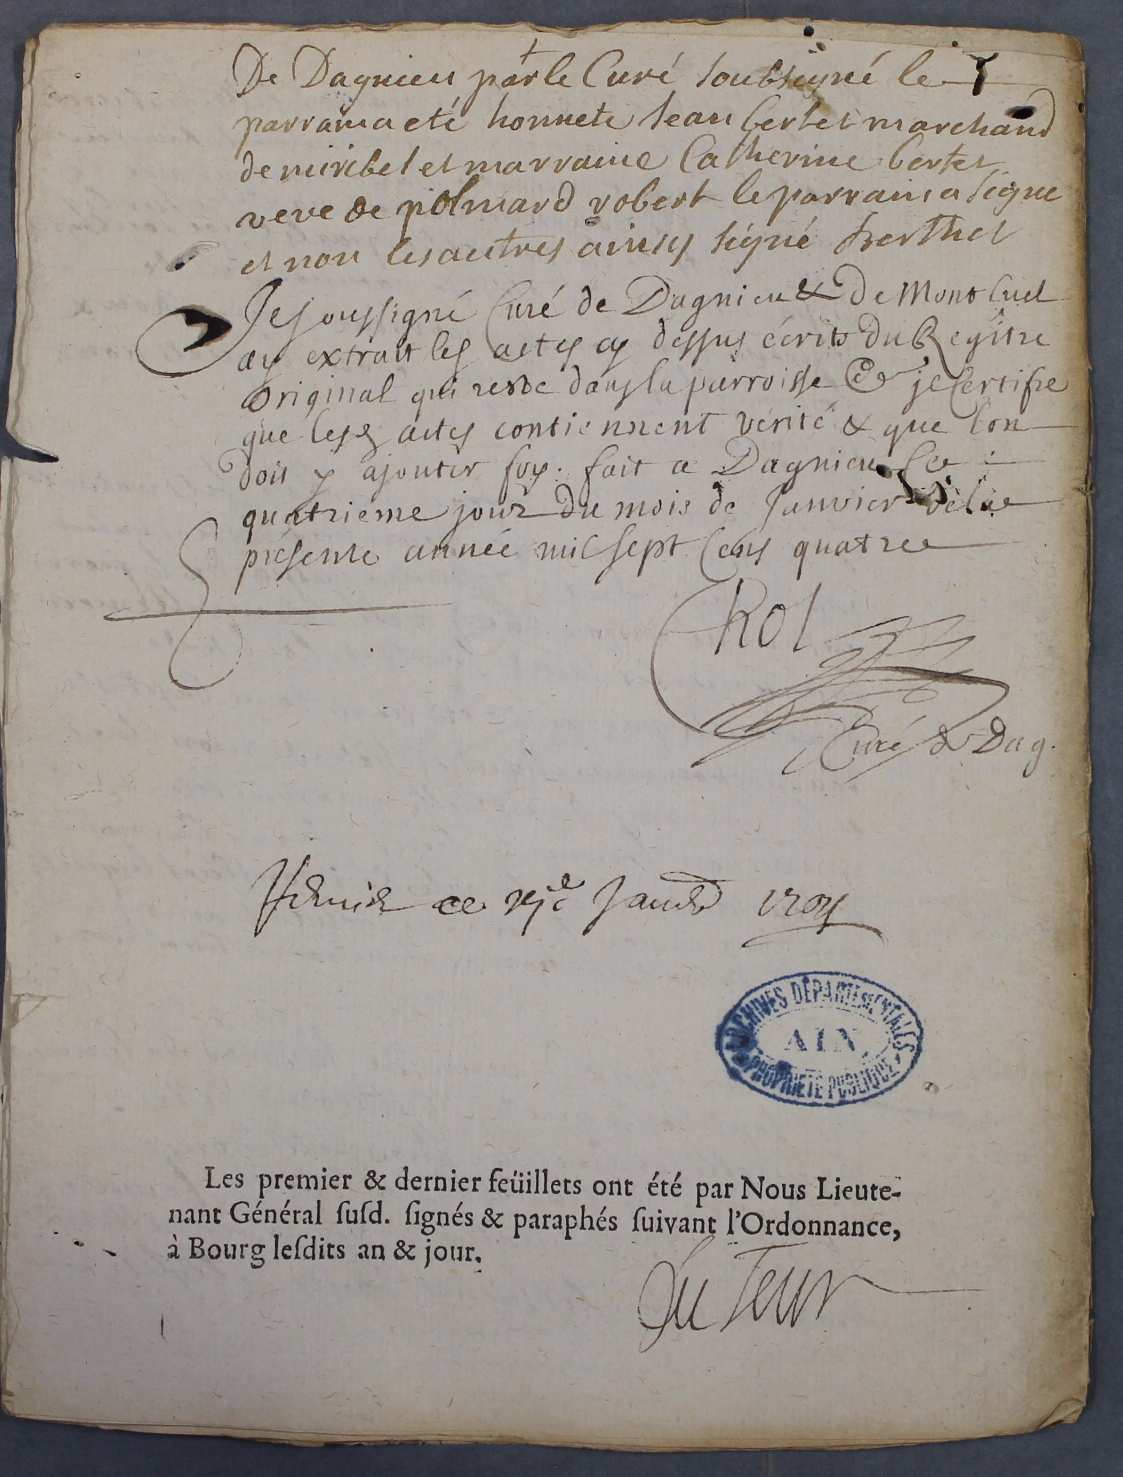 De Dagnieu par le Curé soubsigné le
parrain a eté honnete Jean bertet marchand
de miribel et marraine Catherine bertet
veve de polmard robert le parrain a signe
et non les autres ainsy signé berthet
Je soussigné Curé de Dagnieu & De Mont luel
ay extrait les actes cy dessus écrits du Regitre
original qui reste dans la parroisse & je Certifie
que lesd actes contiennent verité & que lon
doit y ajouter foy. fait a Dagnieu le
quatrieme jour du mois de Janvier de la
présente année mil sept Cens quatre
Rol
Curé de Dag.
ce Janv
ARCHIVES DÉPARTEMENTALES
AIN
PROPRIÉTÉ PUBLIQUE
Les premier & dernier feüillets ont été par Nous Lieute-
nant Général ſuſd. ſignés & paraphés ſuivant l'Ordonnance,
à Bourg leſdits an & jour.